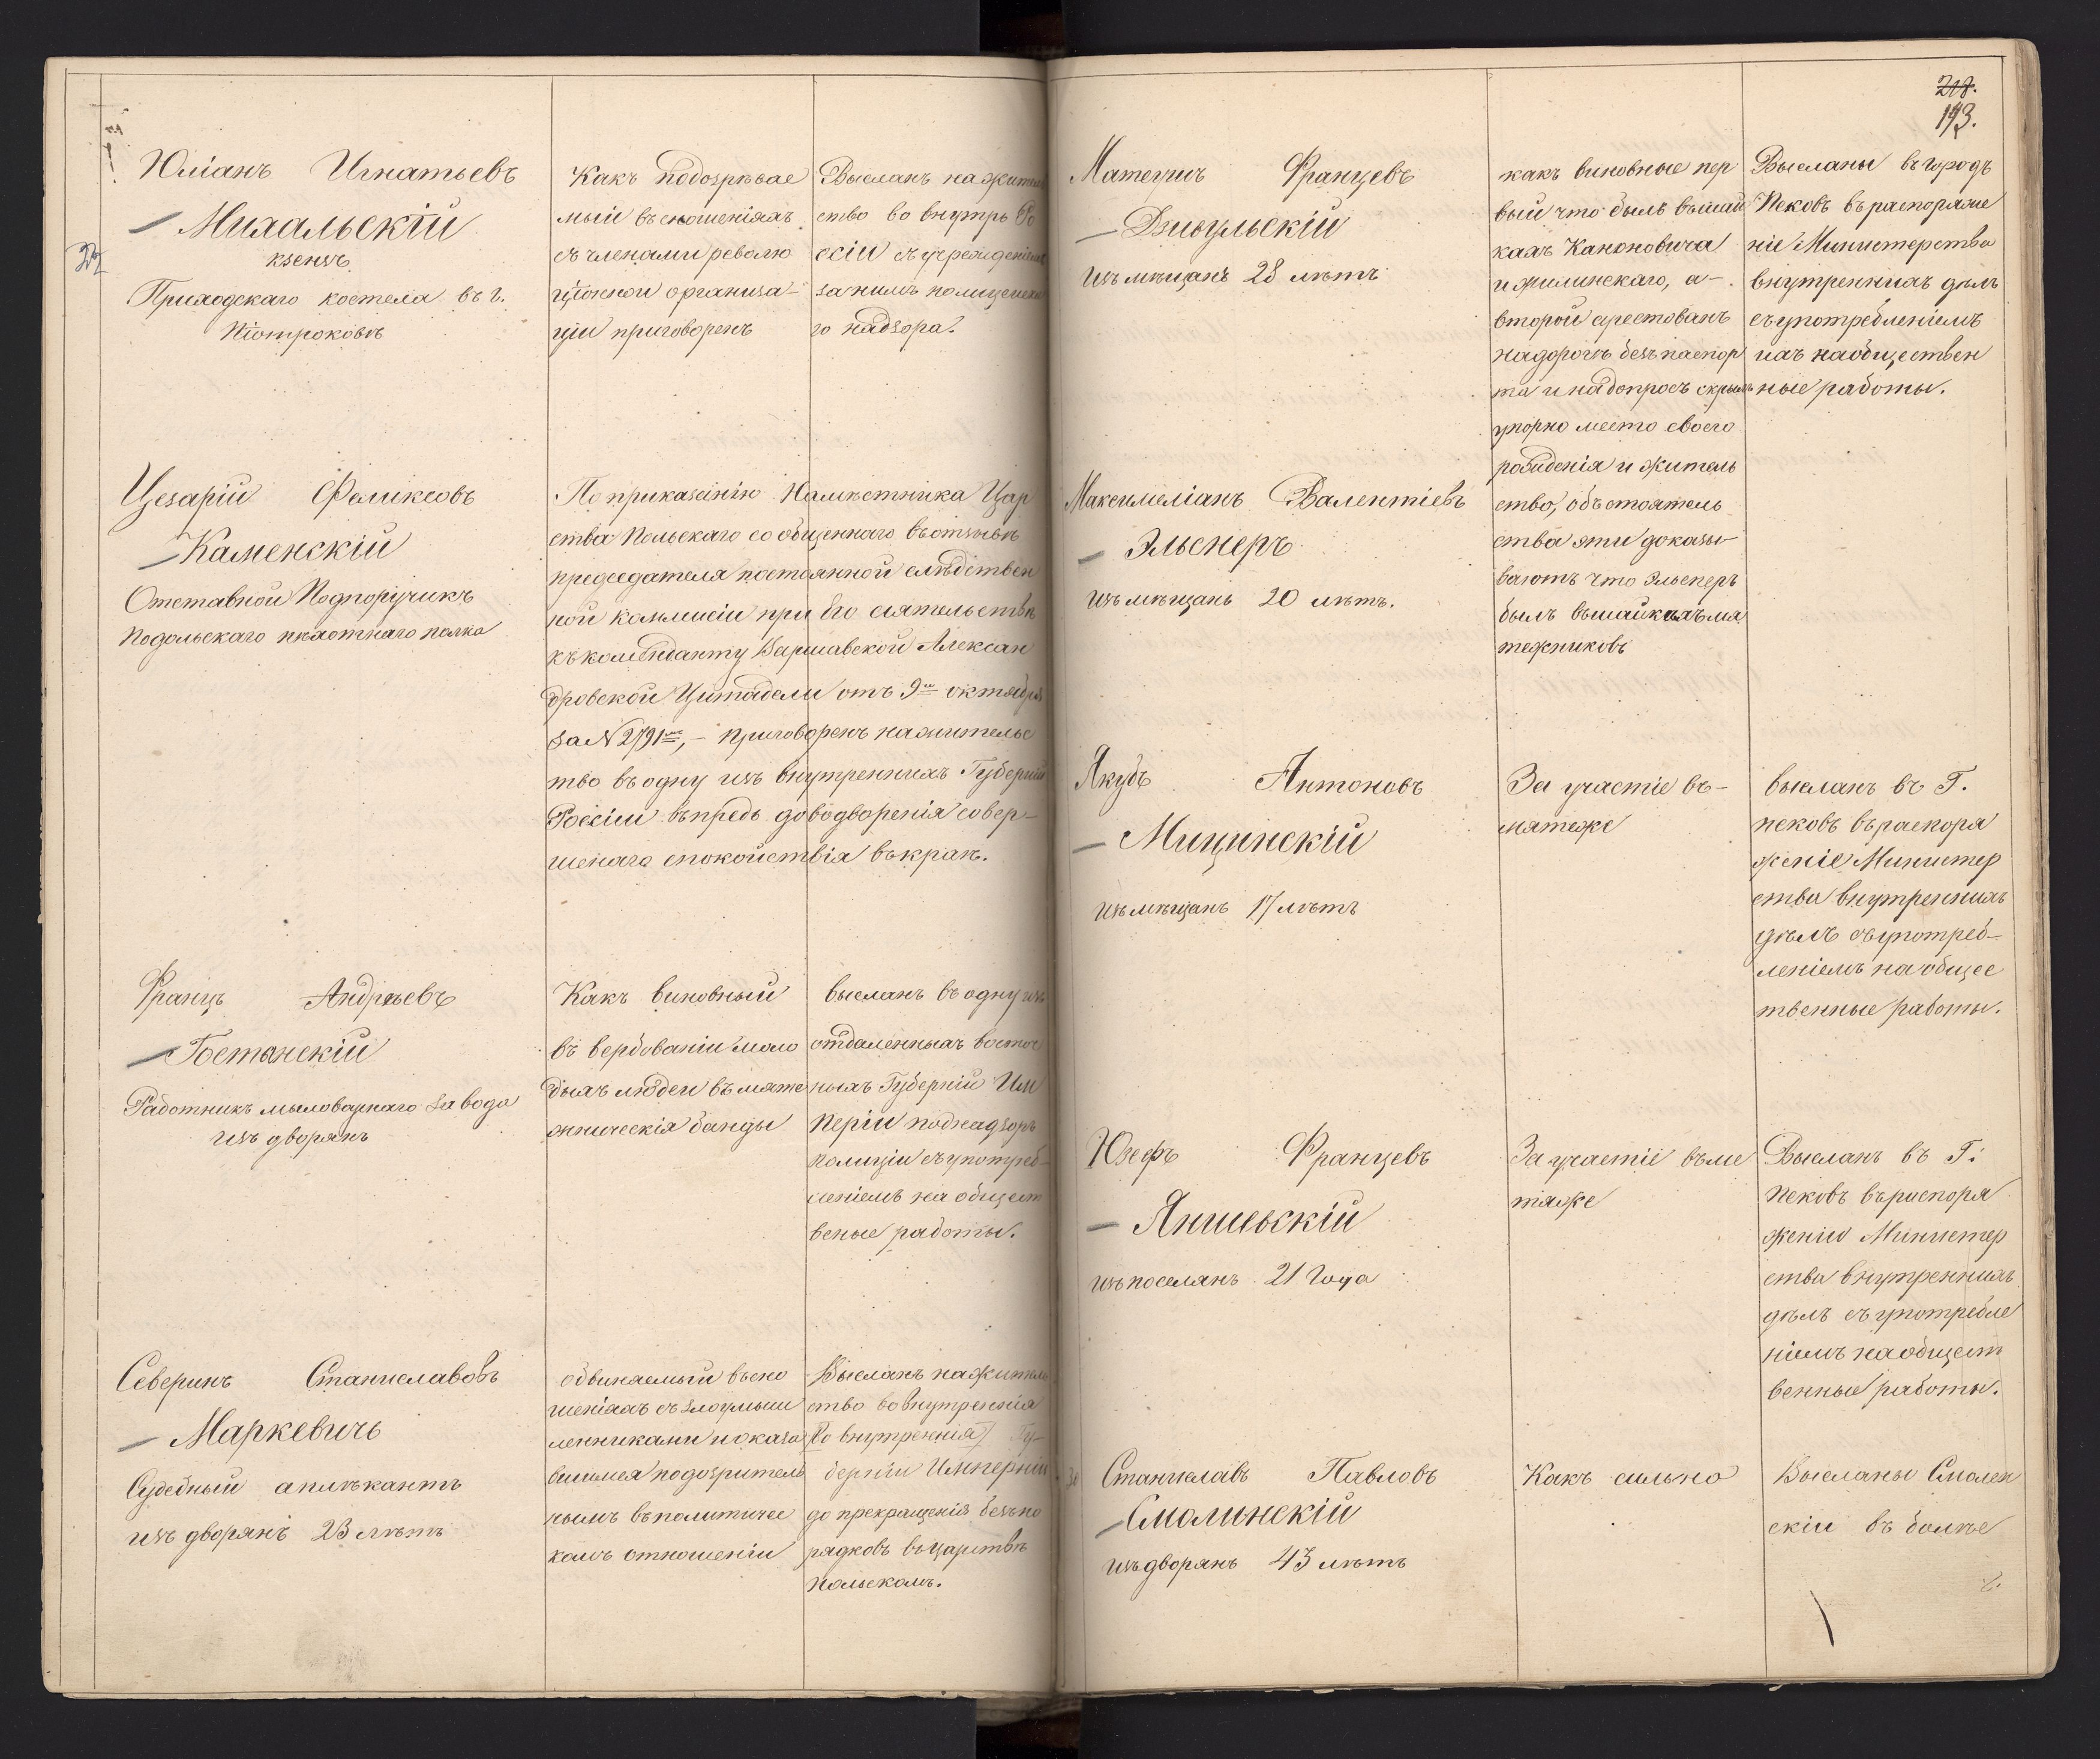 Юліанъ Игнатьевъ
Михальскій
ксензъ
Приходскаго костела въ г.
Піотроковѣ
Какъ подозрѣвае
мый въ сношеніяхъ
съ членами револю
ціонной организа-
ціи приговоренъ
Высланъ на жител
ство во внутрь Ро
ссіи съ учрежденіемъ
за нимъ полицейска
го надзора.
Цезарій Феликсовъ
Каменскій
Отставной Подпоручикъ
Подольскаго пѣхотнаго полка
По приказанію Намѣстника Цар
ства Польскаго сообщеннаго въ отзывѣ
председателя постоянной слѣдствен
ной коммисіи при Его сіятельствѣ
къ коменданту Варшавской Алексан
дровской Цитадели отъ 9го октября
за № 2791мъ, – приговоренъ на жительс
тво въ одну изъ внутреннихъ Губерній
Россіи въпредь до водворенія совер-
шенаго спокойствія въ краѣ.
Францъ Андрѣевъ
Гостынскій
Работникъ мыловарнаго завода
изъ дворянъ
Какъ виновный
въ вербованіи моло
дыхъ людей въ мяте
жническія банды
высланъ въ одну изъ
отдаленныхъ восточ
ныхъ Губерній Им
періи под надзоръ
полиціи съ употреб-
леніемъ на общест
веные работы.
Северинъ Станиславовъ
Маркевичъ
Судебный аплѣкантъ
изъ дворянъ 23 лѣтъ
обвиняемый въ сно
шеніяхъ съ злоумыш
ленниками и оказа
вшимся подозритель
нымъ въ политичес
комъ отношеніи
Высланъ на житель
ство во внутреннія
[во внутреннія] Гу-
берніи Имперіи
до прекращенія безъпо
рядковъ въ царствѣ
Польскомъ.
218.
193.
Матеушъ Францевъ
Дзигульскій
изъ мѣщанъ 28 лѣтъ
Максимеліанъ Валентіевъ
Эльснеръ
изъ мѣщанъ 20 лѣтъ.
какъ виновные пер
вый что былъ въ шай
кахъ Каноновича
и жилинскаго, а-
второй арестованъ
на дорогѣ безъ паспор
та и на допросъ скрылъ
упорно место своего
рожденія и житель
ство, объстоятель
ства эти доказы-
ваютъ что Эльснеръ
былъ въ шайкахъ мя
тежниковъ
Высланы въ городъ
Псковъ въ распоряже
ніе Министерства
внутреннихъ дѣлъ
съ употребленіемъ
ихъ на обществен
ные работы.
Якубъ Антоновъ
Мицинскій
изъ мѣщанъ 17 лѣтъ
За участіе въ-
мятеже
высланъ въ Г.
псковъ въ распоря
женіе Министер
ства внутреннихъ
дѣлъ съ употреб-
леніемъ на общес
твенные работы.
Юзефъ Францевъ
Янишевскій
изъ поселянъ 21 Года
За участіе въ мя
тяже
Высланъ въ Г:
Псковъ въ распоря
женіи Министер
ства внутреннихъ
дѣлъ съ употребле
ніемъ на общест
венные работы.
Станиславъ Павловъ
Смолинскій
изъ дворянъ 43 лѣтъ
Какъ сильно
Высланы Смолен
скій въ болѣе